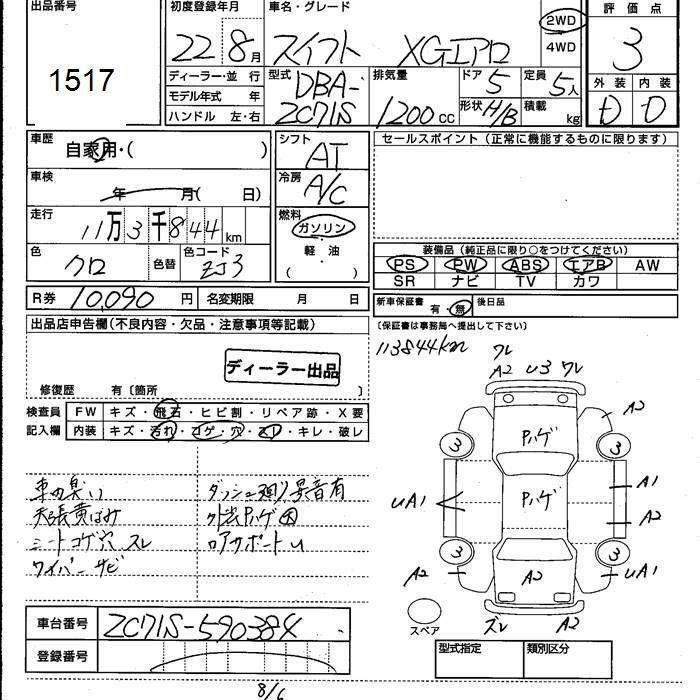 出品番号
1517
初度登録年月
22 8月
車名・グレード
スイフト XGエアロ
2WD
4WD
評価点
3
外装 内装
D D
ディーラー・並行
モデル年式 年
ハンドル 左・右
型式
DBA-
ZC71S
排気量
1200cc
ドア 5
定員 5人
形状 H/B
積載 kg
車歴
自家用・( )
車検
年 月( 日)
走行
11万3千844km
色
クロ
色替
色コード
ZJ3
シフト
AT
冷房
A/C
燃料
ガソリン
・
軽・油
・
( )
セールスポイント(正常に機能するものに限ります)
装備品(純正品に限り○をつけてください)
PS PW ABS エアB AW
SR ナビ TV カワ
R券 10,090円
名変期限 月 日
新車保証書 有・無 後日品
(保証書は事務局へ提出して下さい)
出品店申告欄(不良内容・欠品・注意事項等記載)
ディーラー出品
修復歴 有〔箇所 〕
113844km
検査員
記入欄
FW キズ・飛石・ヒビ割・リペア跡・X要
内装 キズ・汚れ・コゲ・穴・スレ・キレ・破レ
車内臭い
天張黄ばみ
シートコゲ穴 スレ
ワイパーサビ
ダッシュ廻り異音有
外装Pハゲ大
ロアサポートU
ワレ
A2 U3 ワレ
A2
Pハゲ
3 3
UA1
Pハゲ
A1
A2
3 3
A2
A2
UA1
スペア
ズレ A2
車台番号
ZC71S-590384
登録番号
型式指定 類別区分
8/6